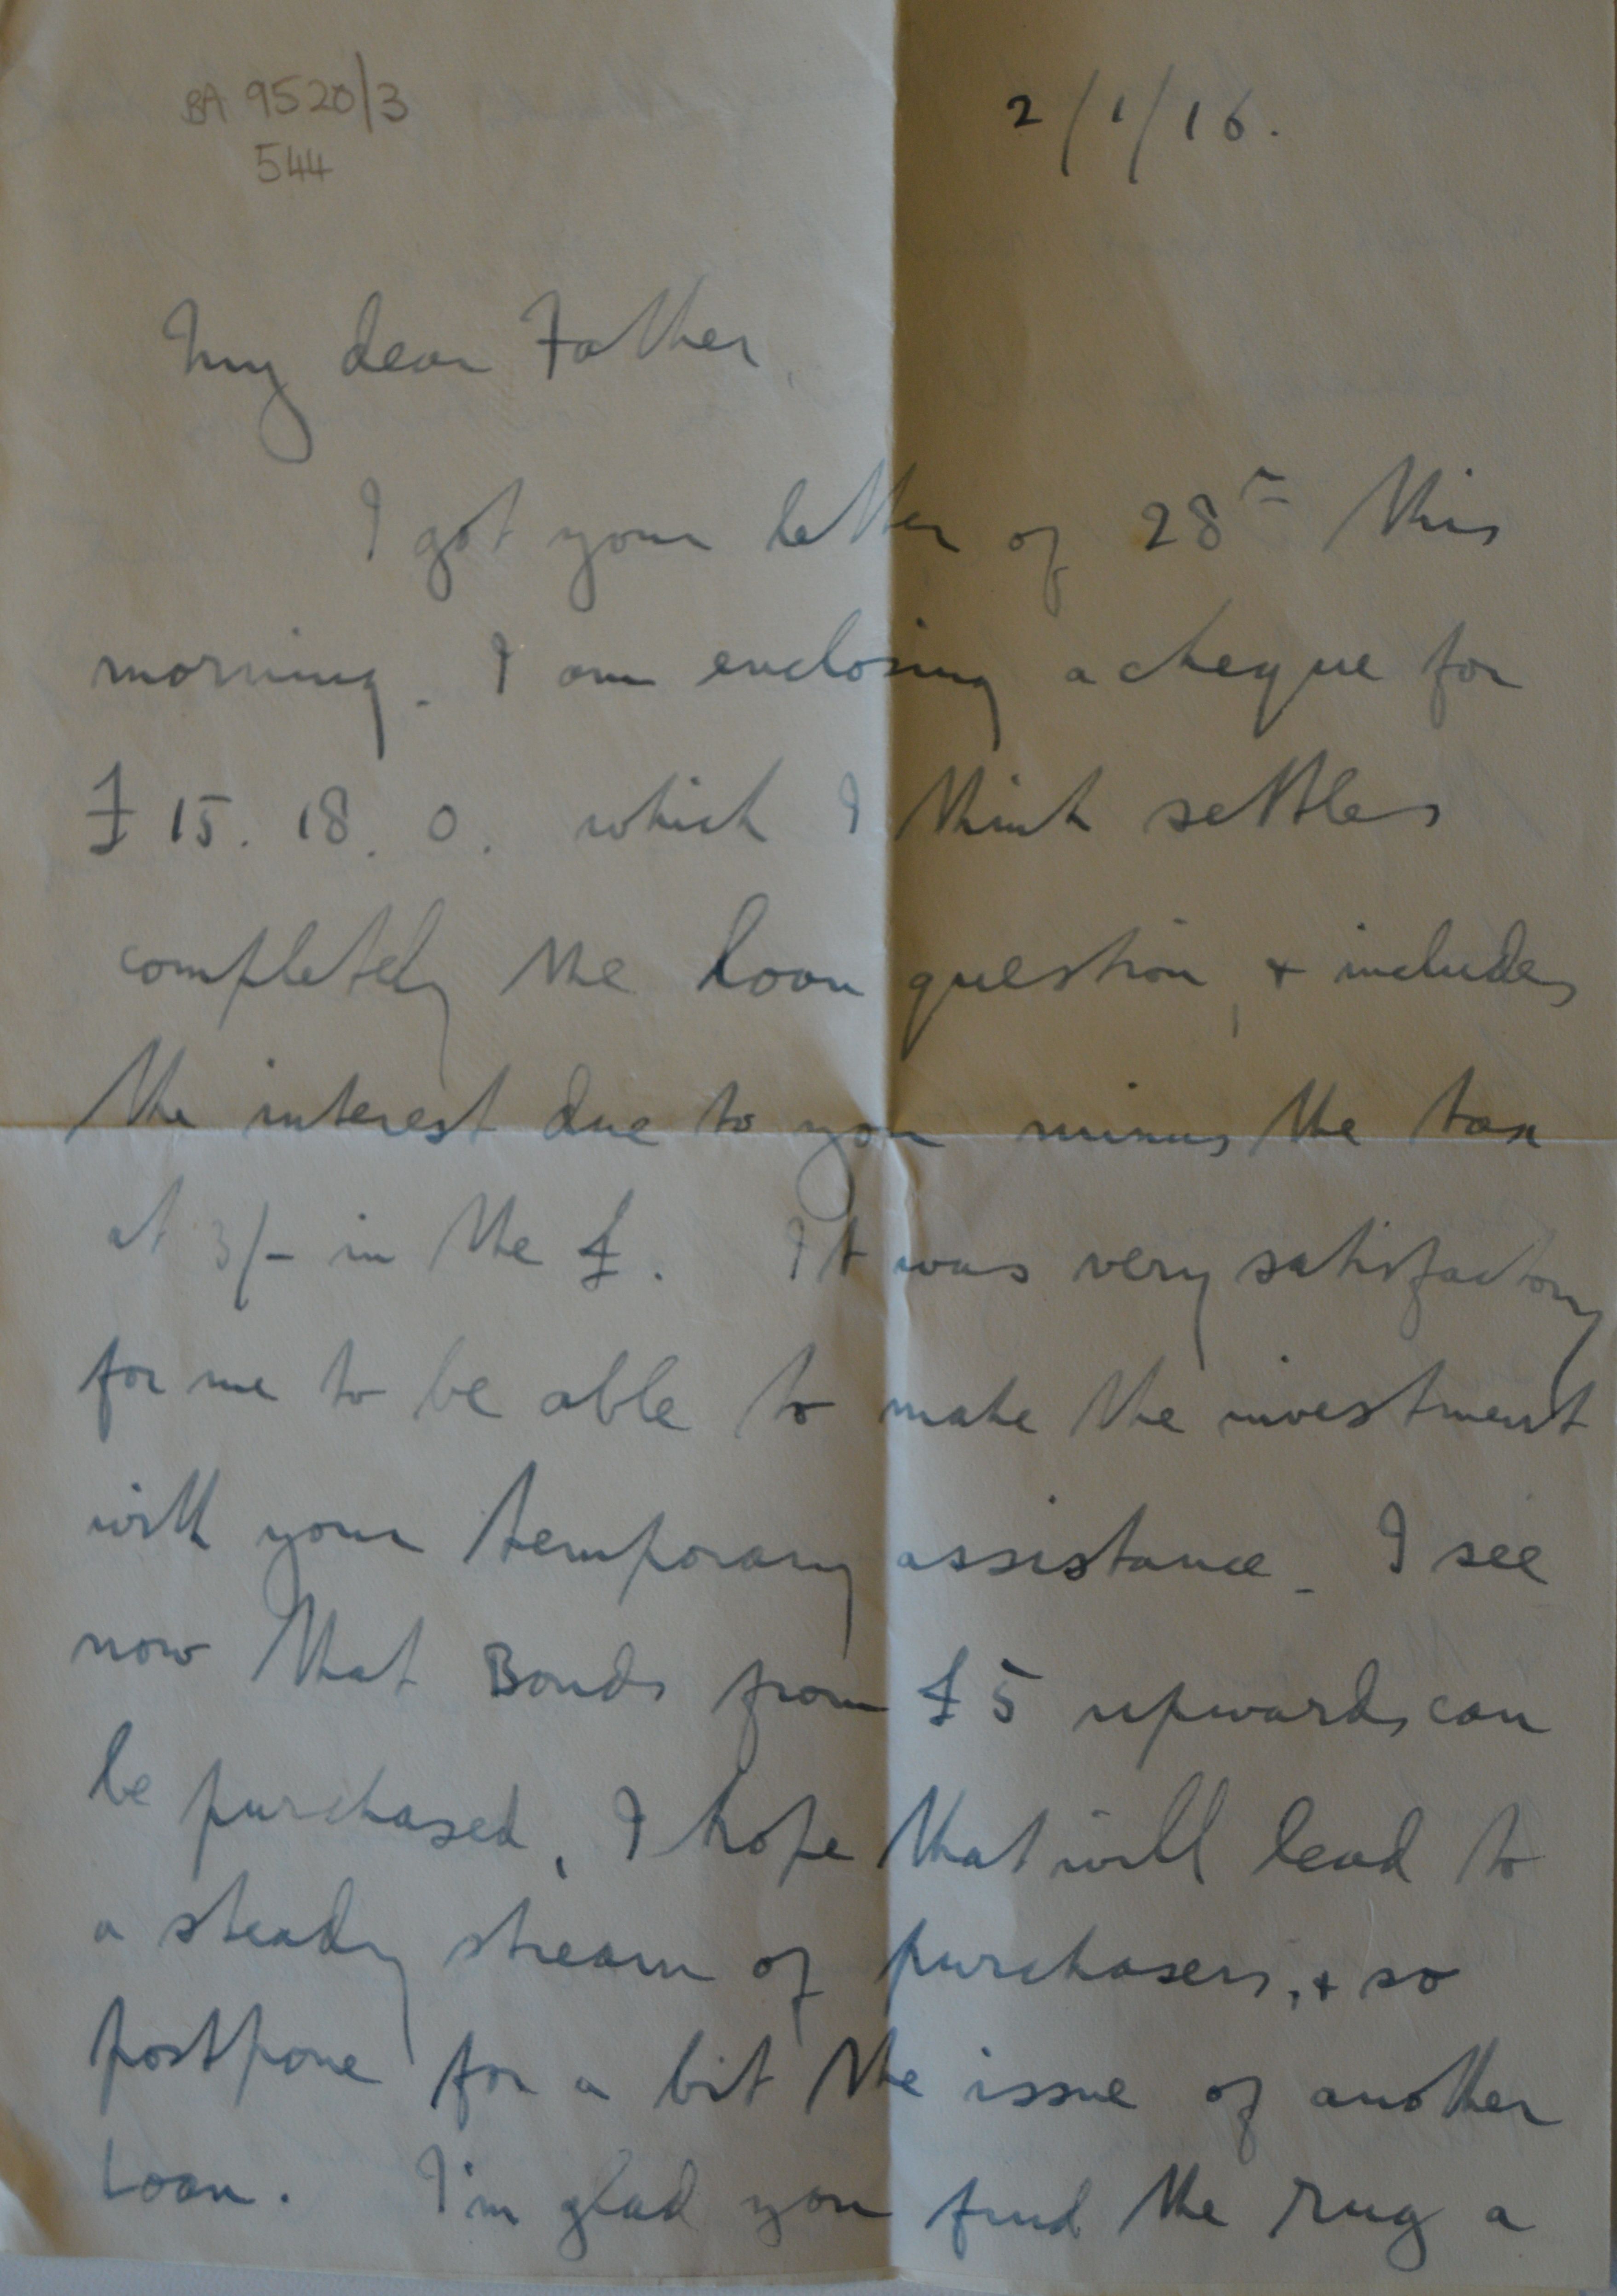 BA 9520/3
544
2/1/16.
My dear Father,
I got your letter of 28th this
morning. I am enclosing a cheque for
£15. 18. 0. which I think settles
completely the loan question, & includes
the interest due to you minus the tax
at 3/- in the £. It was very satisfactory
for me to be able to make the investment
with your temporary assistance. I see
now that Bonds from £5 upwards can
be purchased, I hope that will lead to
a steady stream of purchasers, & so
postpone for a bit the issue of another
Loan. I'm glad you find the rug a